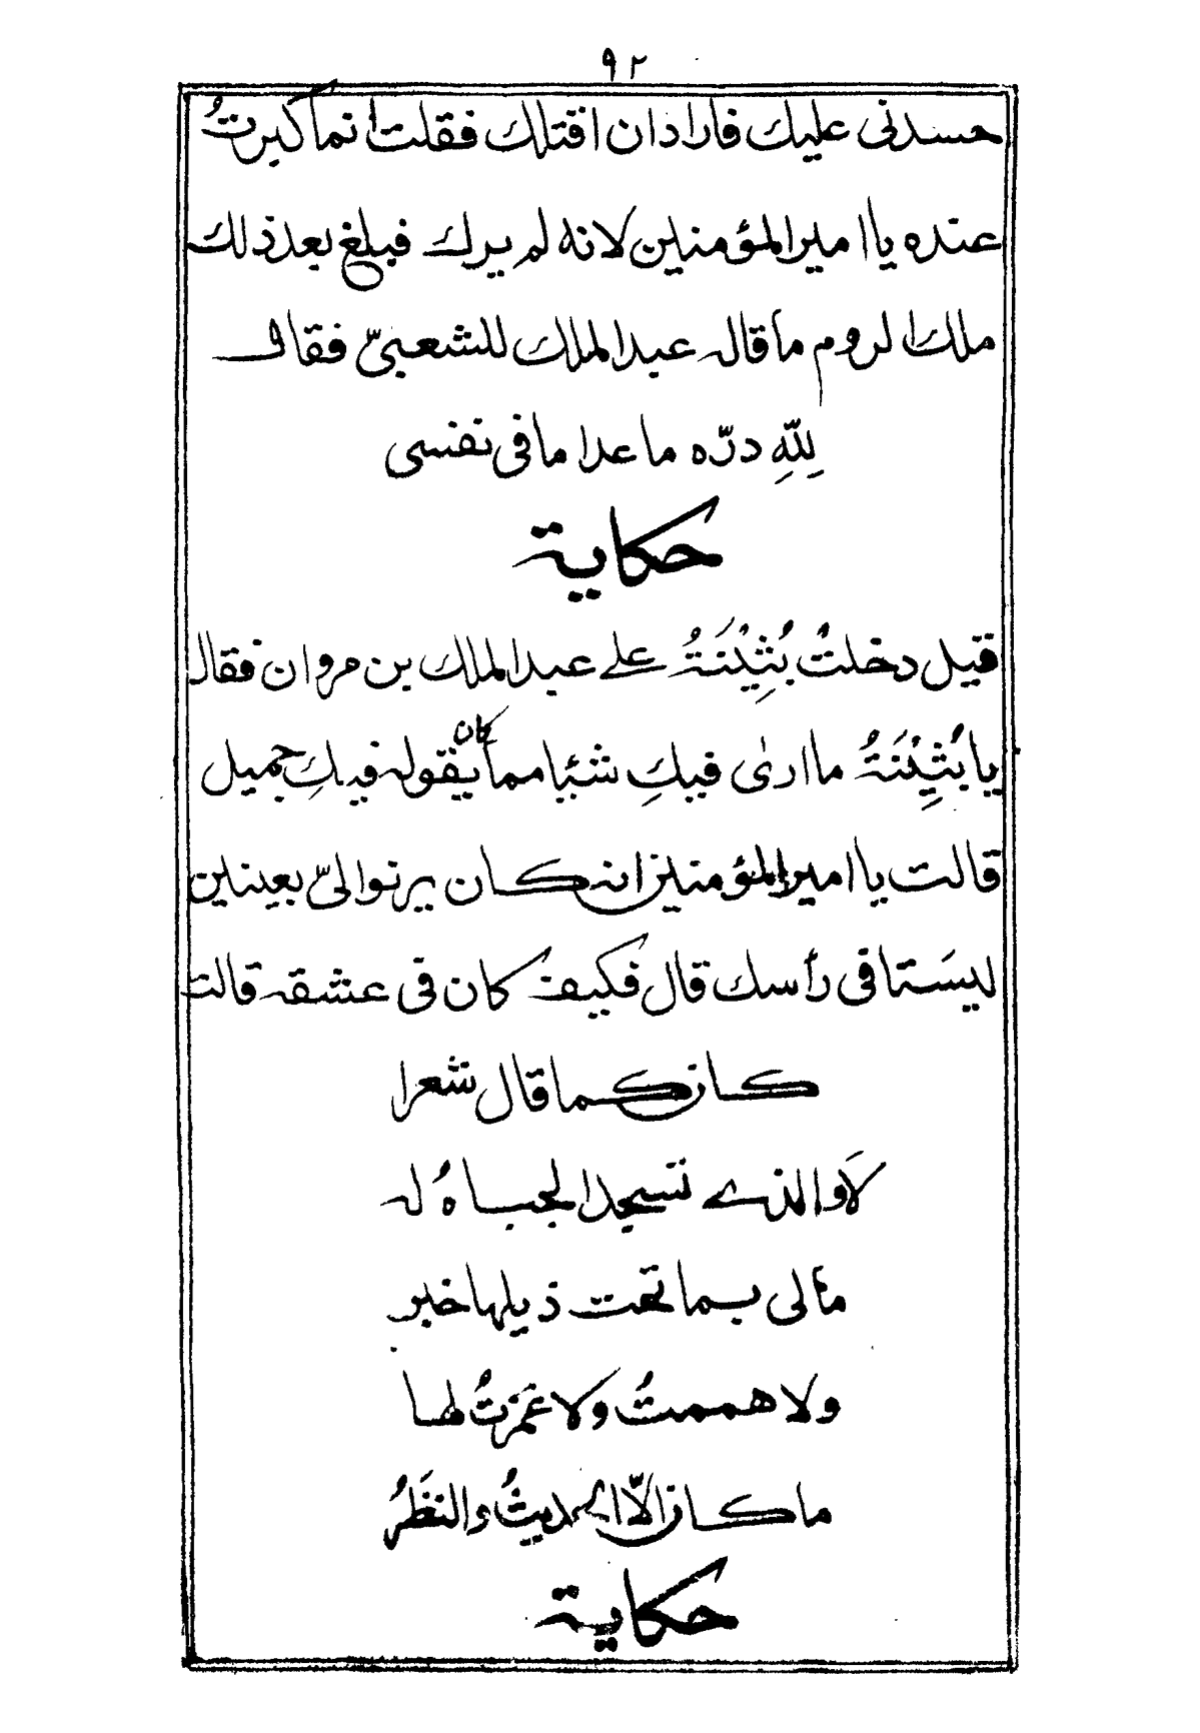 ٩٢
حسدني عليك فاراد ان اقتلك فقلت انما كبرتُ
عنده يا امير المؤمنين لانه لم يرك فبلغ بعد ذلك
ملك الروم ما قال عبد الملك للشعبيّ فقال
لِلّٰهِ درّه ما عدا ما في نفسي
حكاية
قيل دخلتْ بُثَيْنَةُ على عبد الملك بن مروان فقال
يا بُثَيْنَةُ ما ارى فيكِ شئيا مما كان يقوله فيكِ جميل
قالت يا امير المؤمنين انه كان يرنوا اليّ بعينين
ليسَتا في رأسك قال فكيف كان في عشقه قالت
كان كما قال شعرا
لَا والذي تسجد الجباهُ له
ما لي بما تحت ذيلها خبر
ولا هممتُ ولا غمَزتُ لها
ما كان الّا الحديثُ والنظَرُ
حكاية